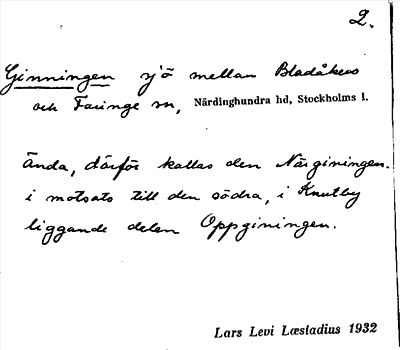 2.
Ginningen sjö mellan Bladåkers
och Faringe sn, Närdinghundra hd, Stockholms l.
ända, därför kallas den Närginingen.
i motsats till den södra, i Knutby
liggande delen Oppginingen.
Lars Levi Læstadius 1932